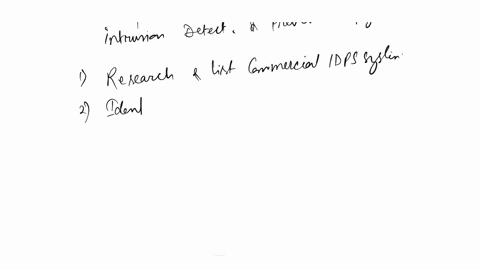 Intrusion Detect. &
1) Research & list Commercial IDPS System
2) Iden